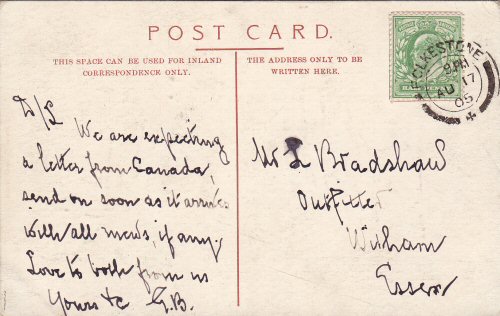 POST CARD.
THIS SPACE CAN BE USED FOR INLAND
CORRESPONDENCE ONLY.
THE ADDRESS ONLY TO BE
WRITTEN HERE.
FOLKESTONE
9 PM
AU 17
05
D/L
We are expecting
a letter from Canada,
send on soon as it arrives
with all news, if any.
Love to both from us
Yours &c G.B.
Mr L Bradshaw
Outfitter
Witham
Essex